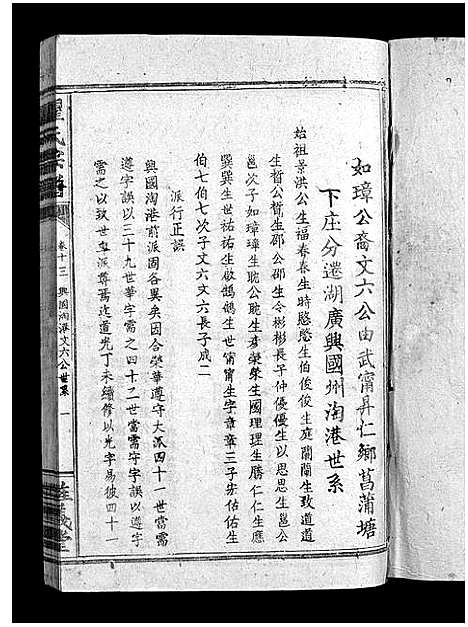 如璋公裔文六公由武寧昇仁鄉菖蒲塘
下庄分遷湖廣興國州淘港世系
始祖景洪公生福春春生時愍愍生伯俊俊生庭蘭蘭生致道道
生晢公晢生邵公邵生令彬彬長子仲優優生以思思生邕公
邕次子如璋璋生耽公耽生彦榮榮生國理理生勝仁仁生應
巽巽生世祐祐生啟鵠鵠生世甯甯生字章章三子安佑佑生
伯七伯七次子文六文六長子成二
派行正誤
興國淘港前派固各異矣因合榮華遵守大派四十一世當需
遵字誤以三十九世華字需之四十二世當需守字誤以遵字
需之以致世卑派尊焉迄道光丁未續修以光字易彼四十一
卷十三
興國淘港文六公世系
一